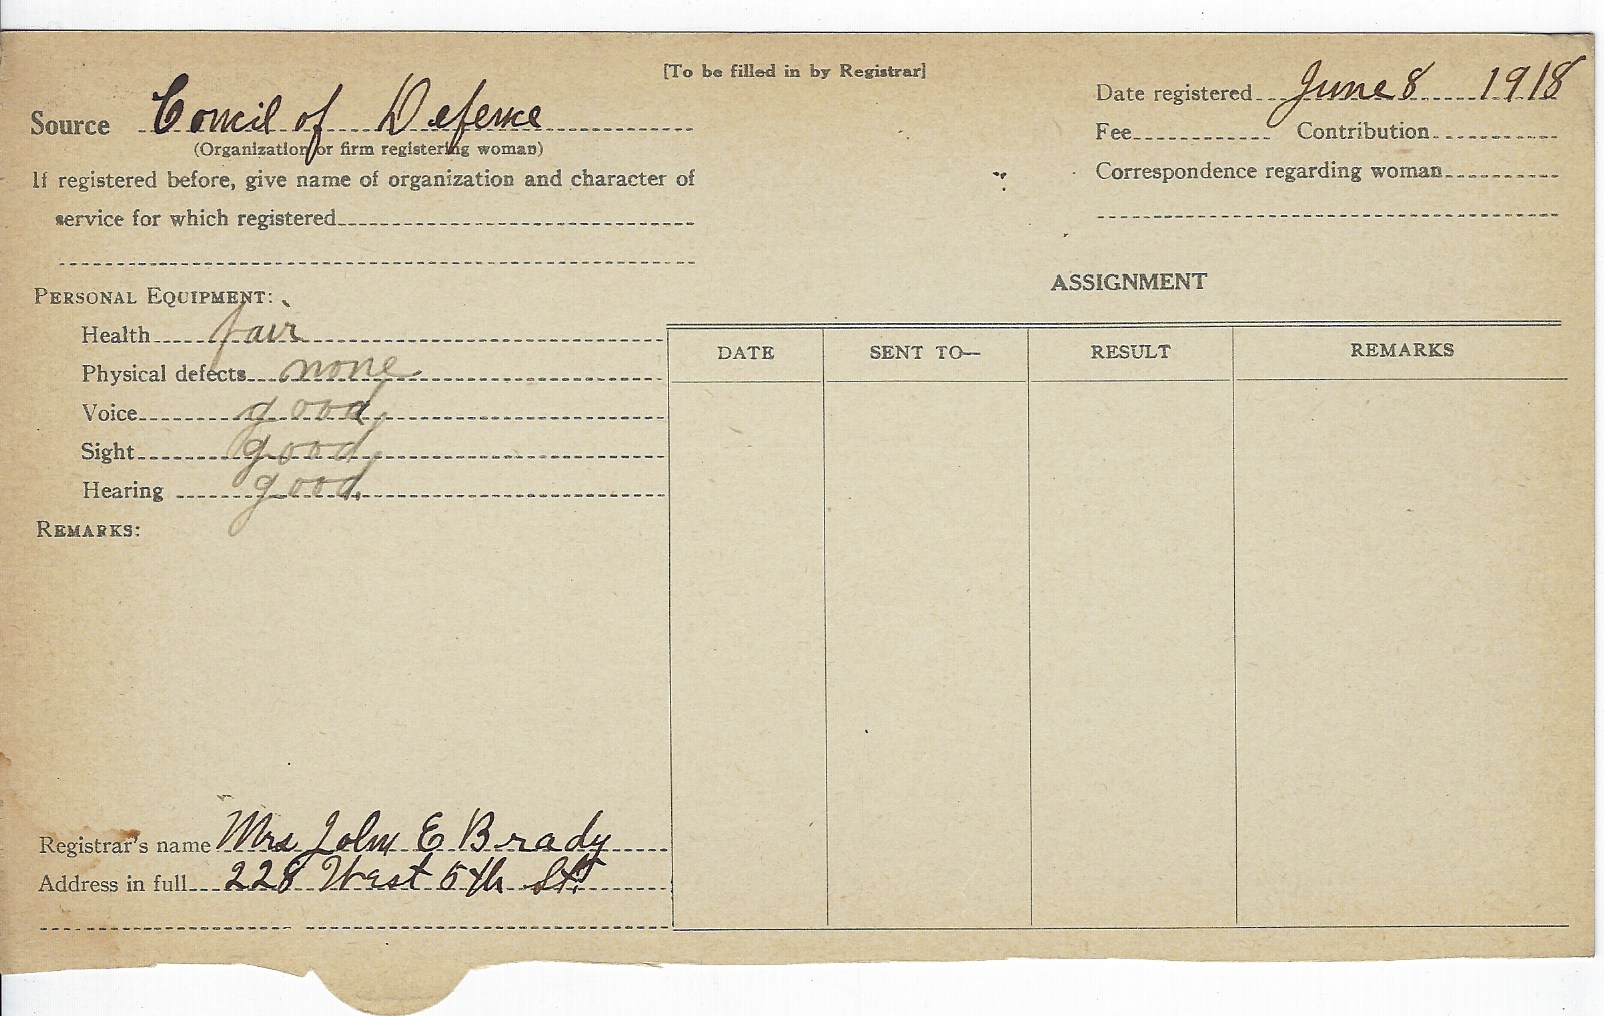 [To be filled in by Registrar]
Source Concil of Defence
(Organization or firm registering woman)
If registered before, give name of organization and character of
service for which registered
Date registered June 8 1918
Fee Contribution
Correspondence regarding woman
PERSONAL EQUIPMENT:
Health fair
Physical defects none
Voice good
Sight good
Hearing good
REMARKS:
ASSIGNMENT
DATE SENT TO— RESULT REMARKS
Registrar's name Mrs John E Brady
Address in full 228 West 5th St.